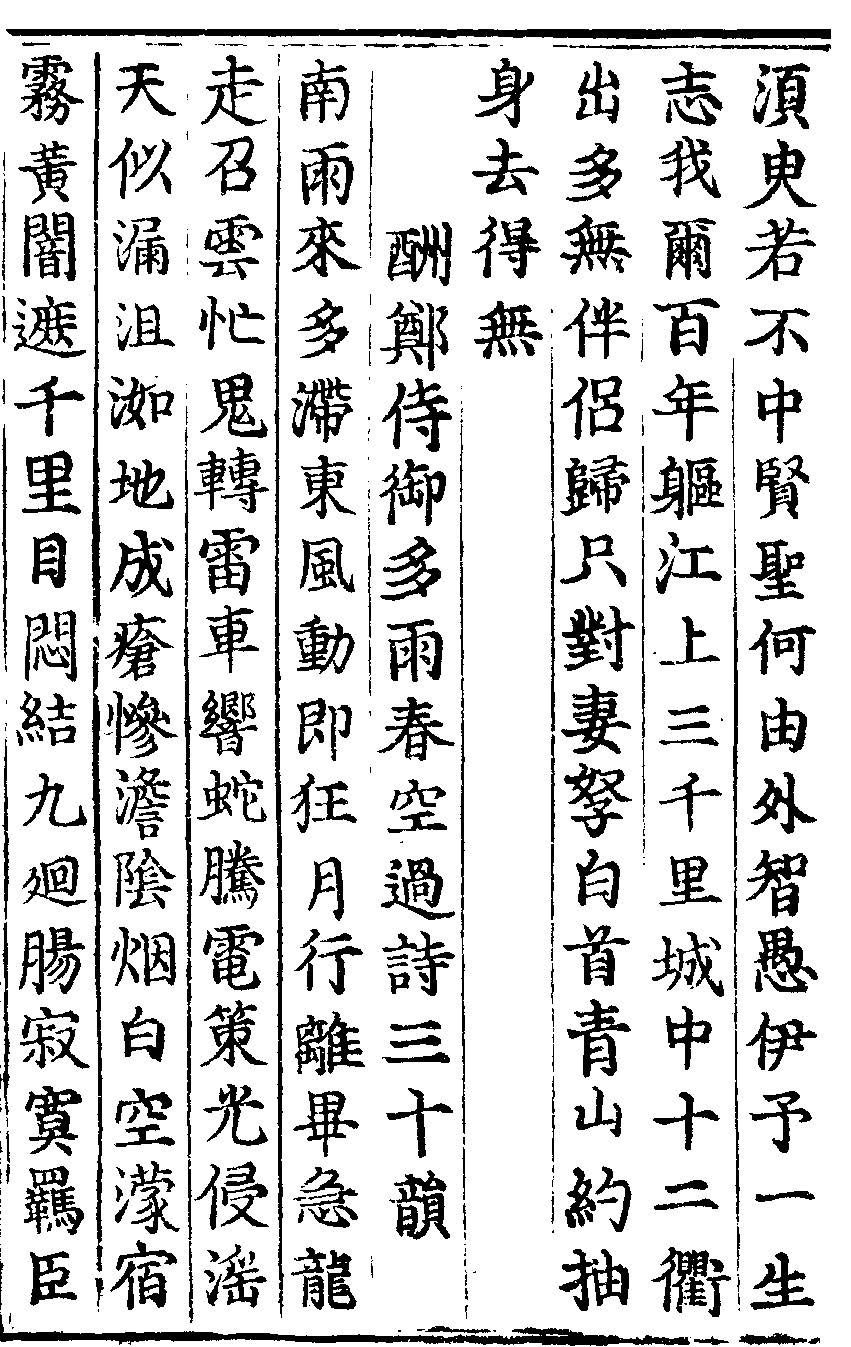 須臾若不中賢聖何由外智愚伊予一生
志我爾百年軀江上三千里城中十二衢
出多無伴侶歸只對妻孥白首青山約抽
身去得無
酬鄭侍御多雨春空過詩三十韻
南雨來多滯東風動即狂月行離畢急龍
走召雲忙鬼轉雷車響蛇騰電策光侵淫
天似漏沮洳地成瘡慘澹陰烟白空濛宿
霧黃闇遮千里目悶結九迴腸寂寞羈臣